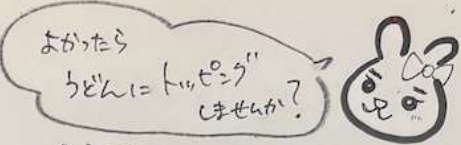 よかったら
うどんにトッピング
しませんか？